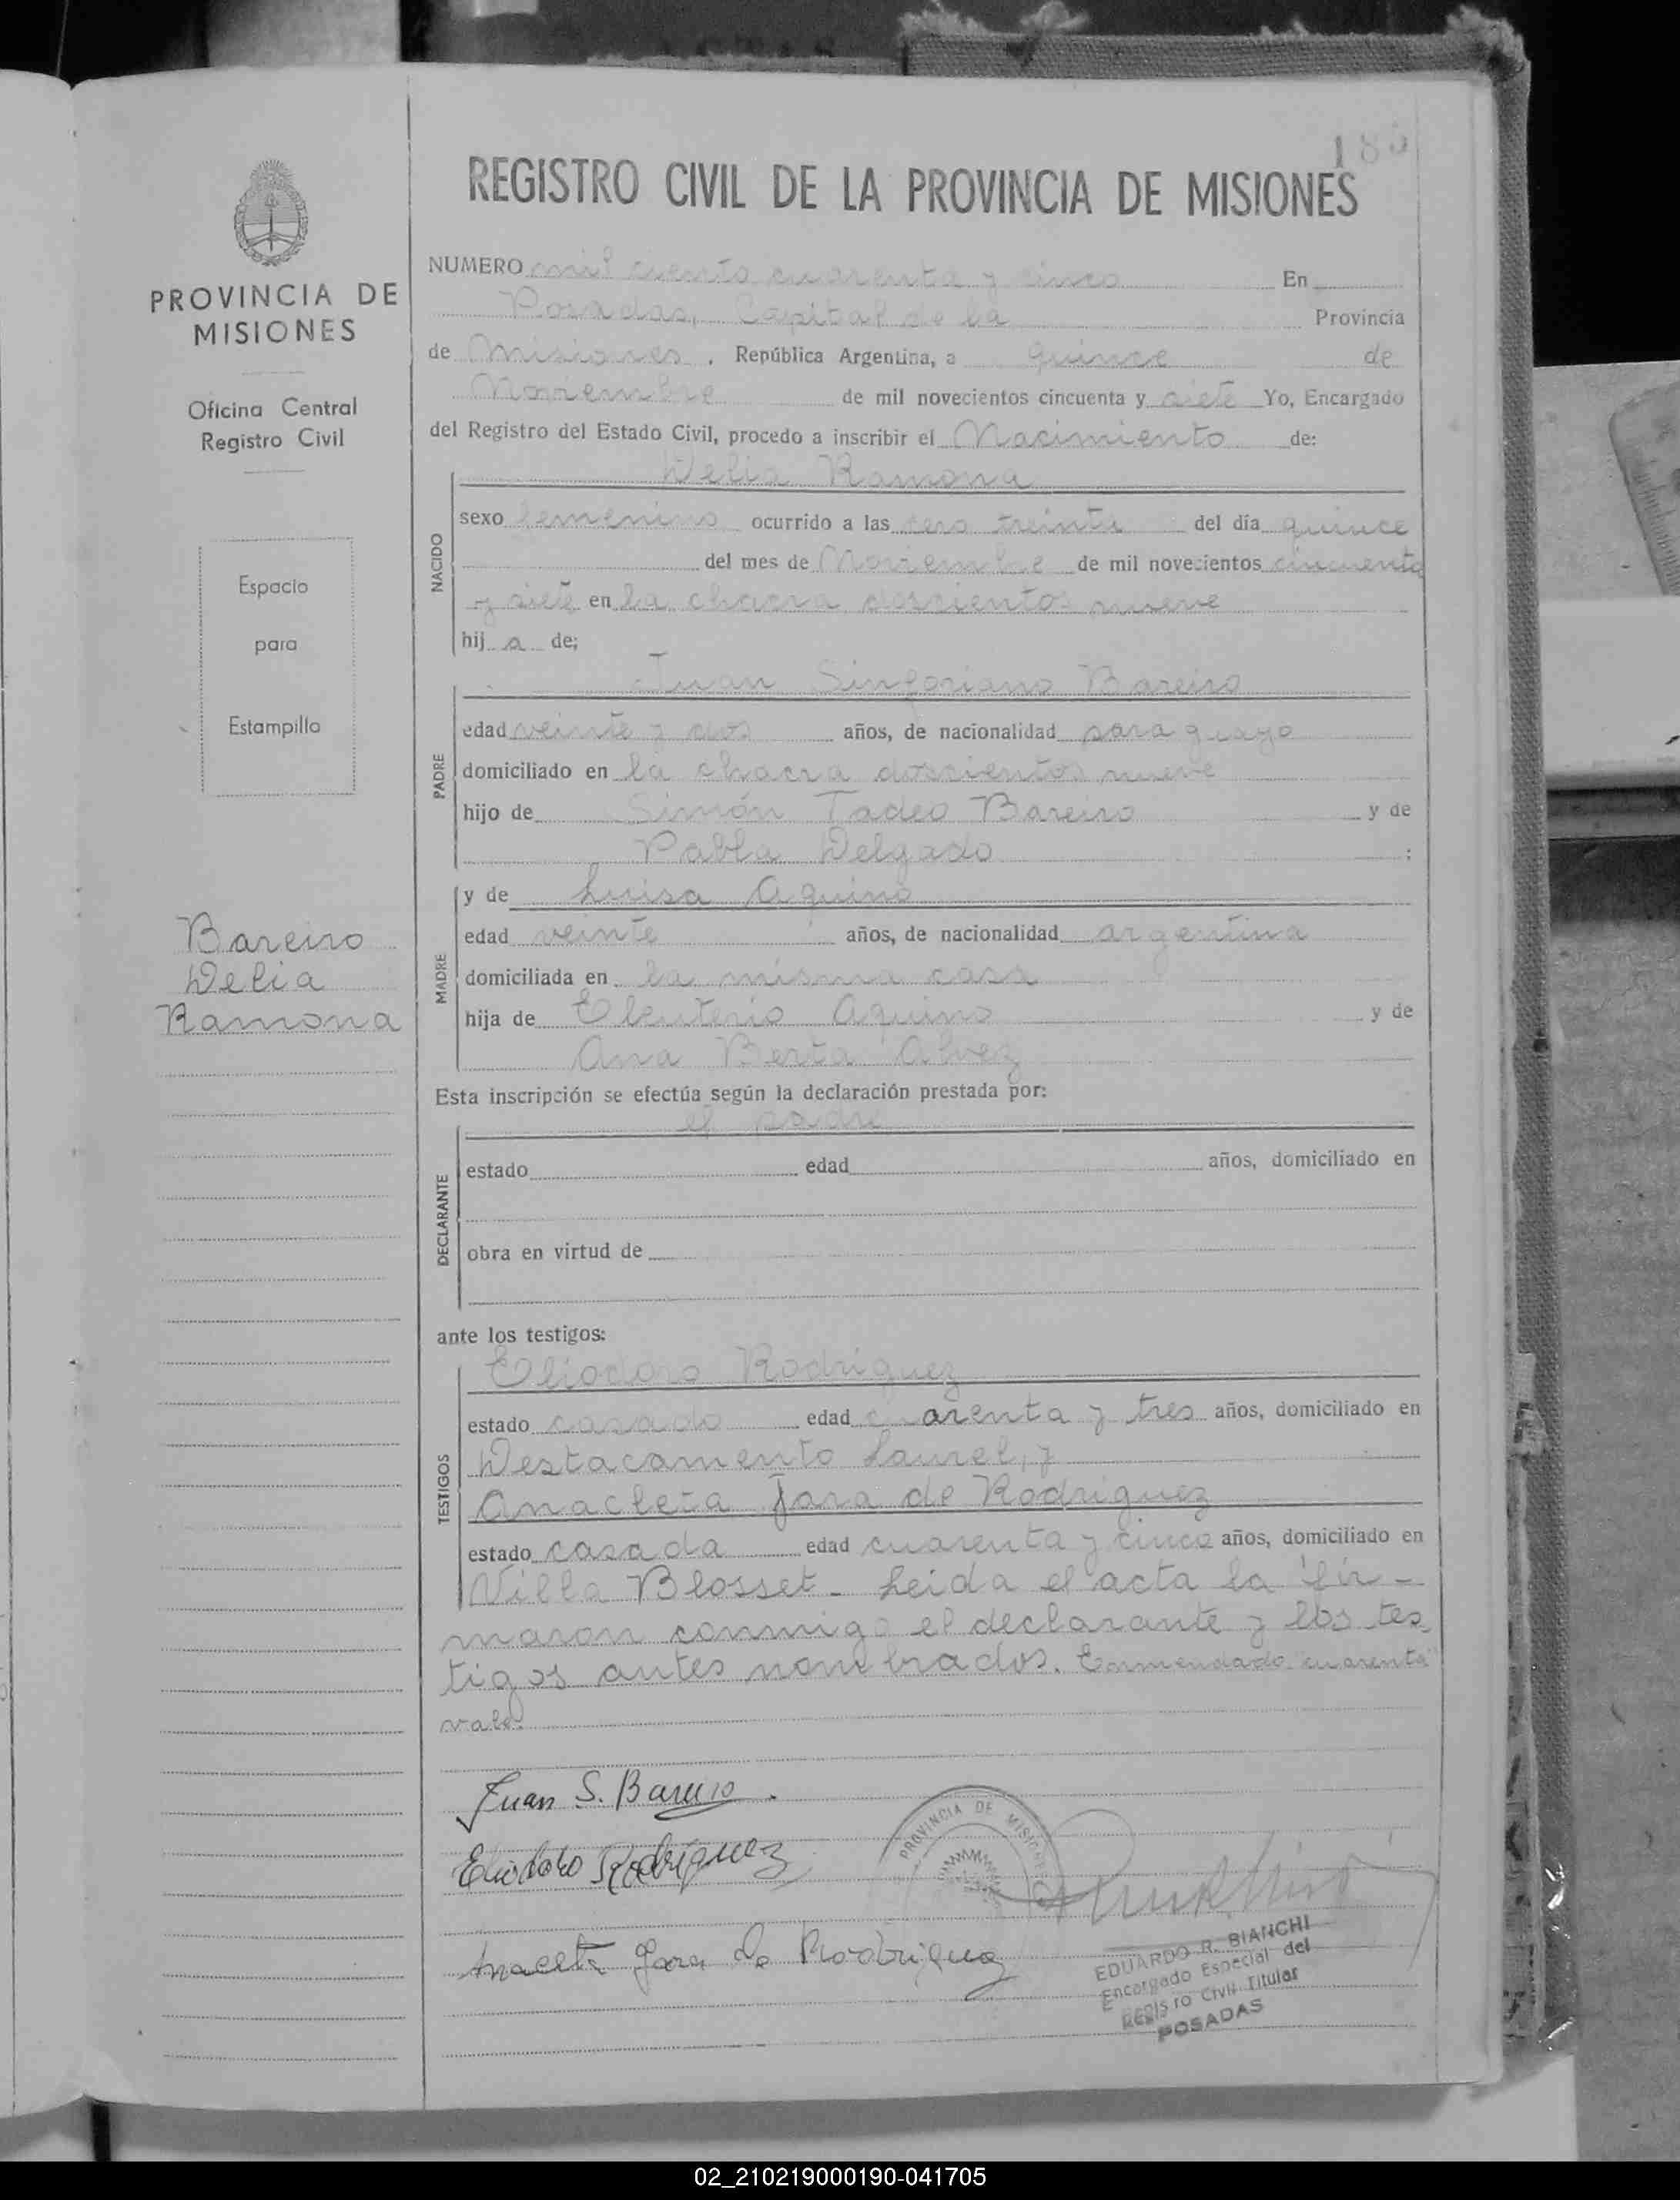 REGISTRO CIVIL DE LA PROVINCIA DE MISIONES
PROVINCIA DE
MISIONES
Oficina Central
Registro Civil
Espacio
para
Estampilla
Bareiro
Delia
Ramona
NUMERO mil ciento cuarenta y cinco En
Posadas, Capital de la Provincia
de Misiones, República Argentina, a quince de
Noviembre de mil novecientos cincuenta y siete Yo, Encargado
del Registro del Estado Civil, procedo a inscribir el Nacimiento de:
NACIDO
Delia Ramona
sexo femenino ocurrido a las cero treinta del día quince
del mes de Noviembre de mil novecientos cincuenta
y siete en la chacra doscientos nueve
hij a de;
PADRE
Juan Sinforiano Bareiro
edad veinte y dos años, de nacionalidad paraguayo
domiciliado en la chacra doscientos nueve
hijo de Simón Tadeo Bareiro y de
Pabla Delgado :
MADRE
y de Luisa Aquino
edad veinte años, de nacionalidad argentina
domiciliada en la misma casa
hija de Eleuterio Aquino y de
Ana Berta Alvez
Esta inscripción se efectúa según la declaración prestada por:
el padre
DECLARANTE
estado edad años, domiciliado en
obra en virtud de
ante los testigos:
TESTIGOS
Eliodoro Rodriguez
estado casado edad cuarenta y tres años, domiciliado en
Destacamento Laurel, y
Anacleta Jara de Rodriguez
estado casada edad cuarenta y cinco años, domiciliado en
Villa Blosset - Leida el acta la fir-
maron conmigo el declarante y los tes
tigos antes nombrados. Enmendado cuarenta
vale.
Juan S. Bareiro.
Eliodoro Rodriguez
Anacleta Jara de Rodriguez
PROVINCIA DE MISIONES
EDUARDO R. BIANCHI
Encargado Especial del
Registro Civil Titular
POSADAS
02_210219000190-041705